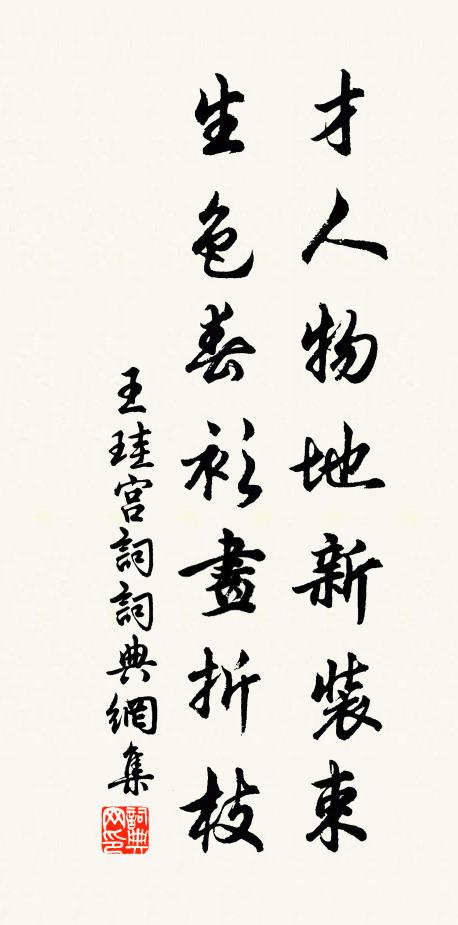 才人物地新裝束
生色春衫畫折枝
王珪宮詞詞典網集
詞典网印